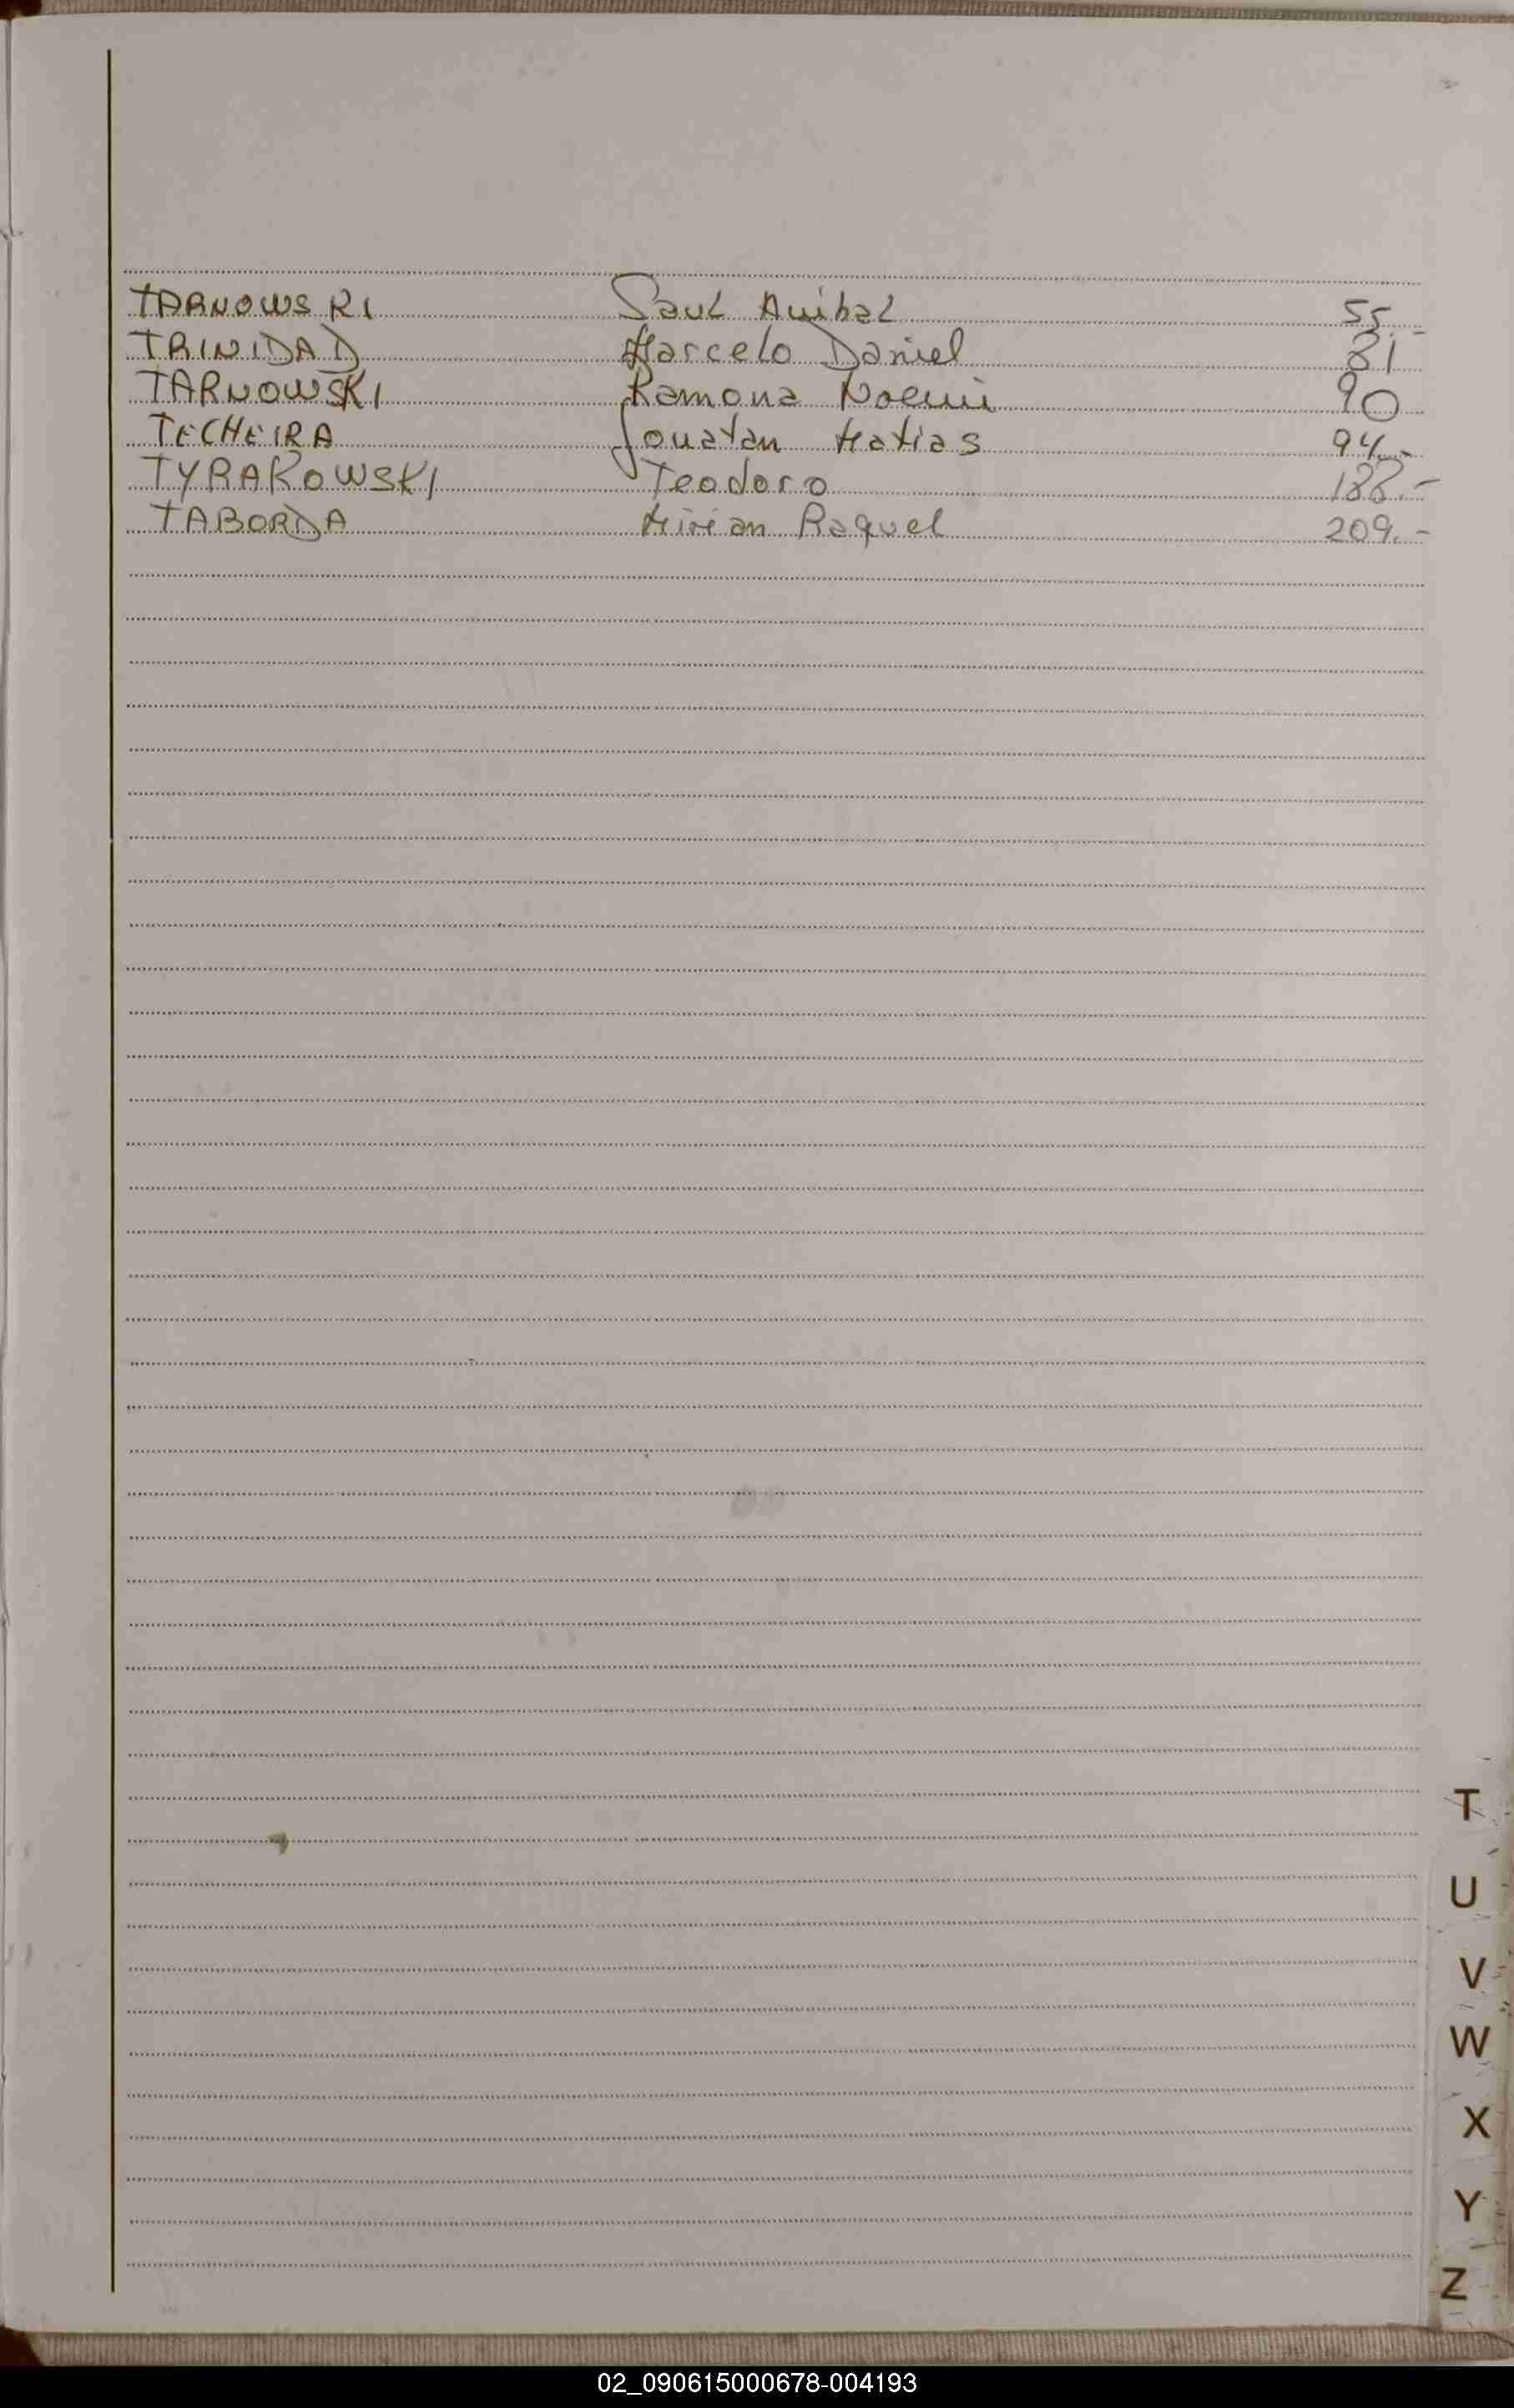 TARNOWSKI Saul Anibal 55.-
TRINIDAD Marcelo Daniel 81
TARNOWSKI Ramona Noemi 90
TECHEIRA Jonatan Matias 94.-
TYRAKOWSKI Teodoro 188.-
TABORDA Mirian Raquel 209.-
T
U
V
W
X
Y
Z
02_090615000678-004193